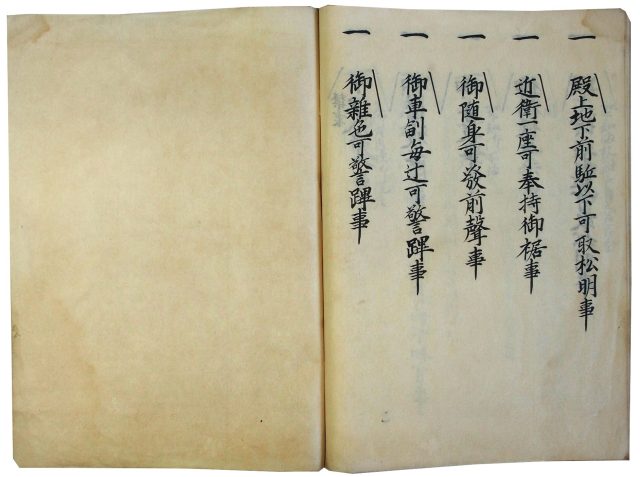 一 殿上地下前駈以下可取松明事
一 近衛一座可奉持御裾事
一 御随身可發前聲事
一 御車副每辻可警蹕事
一 御雜色可警蹕事